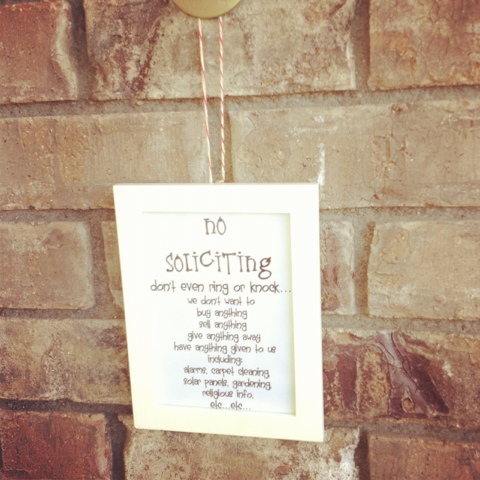 no
soliciting
don't even ring or knock...
we don't want to
buy anything
sell anything
give anything away
have anything given to us
including:
alarms, carpet cleaning,
solar panels, gardening,
religious info,
etc...etc...